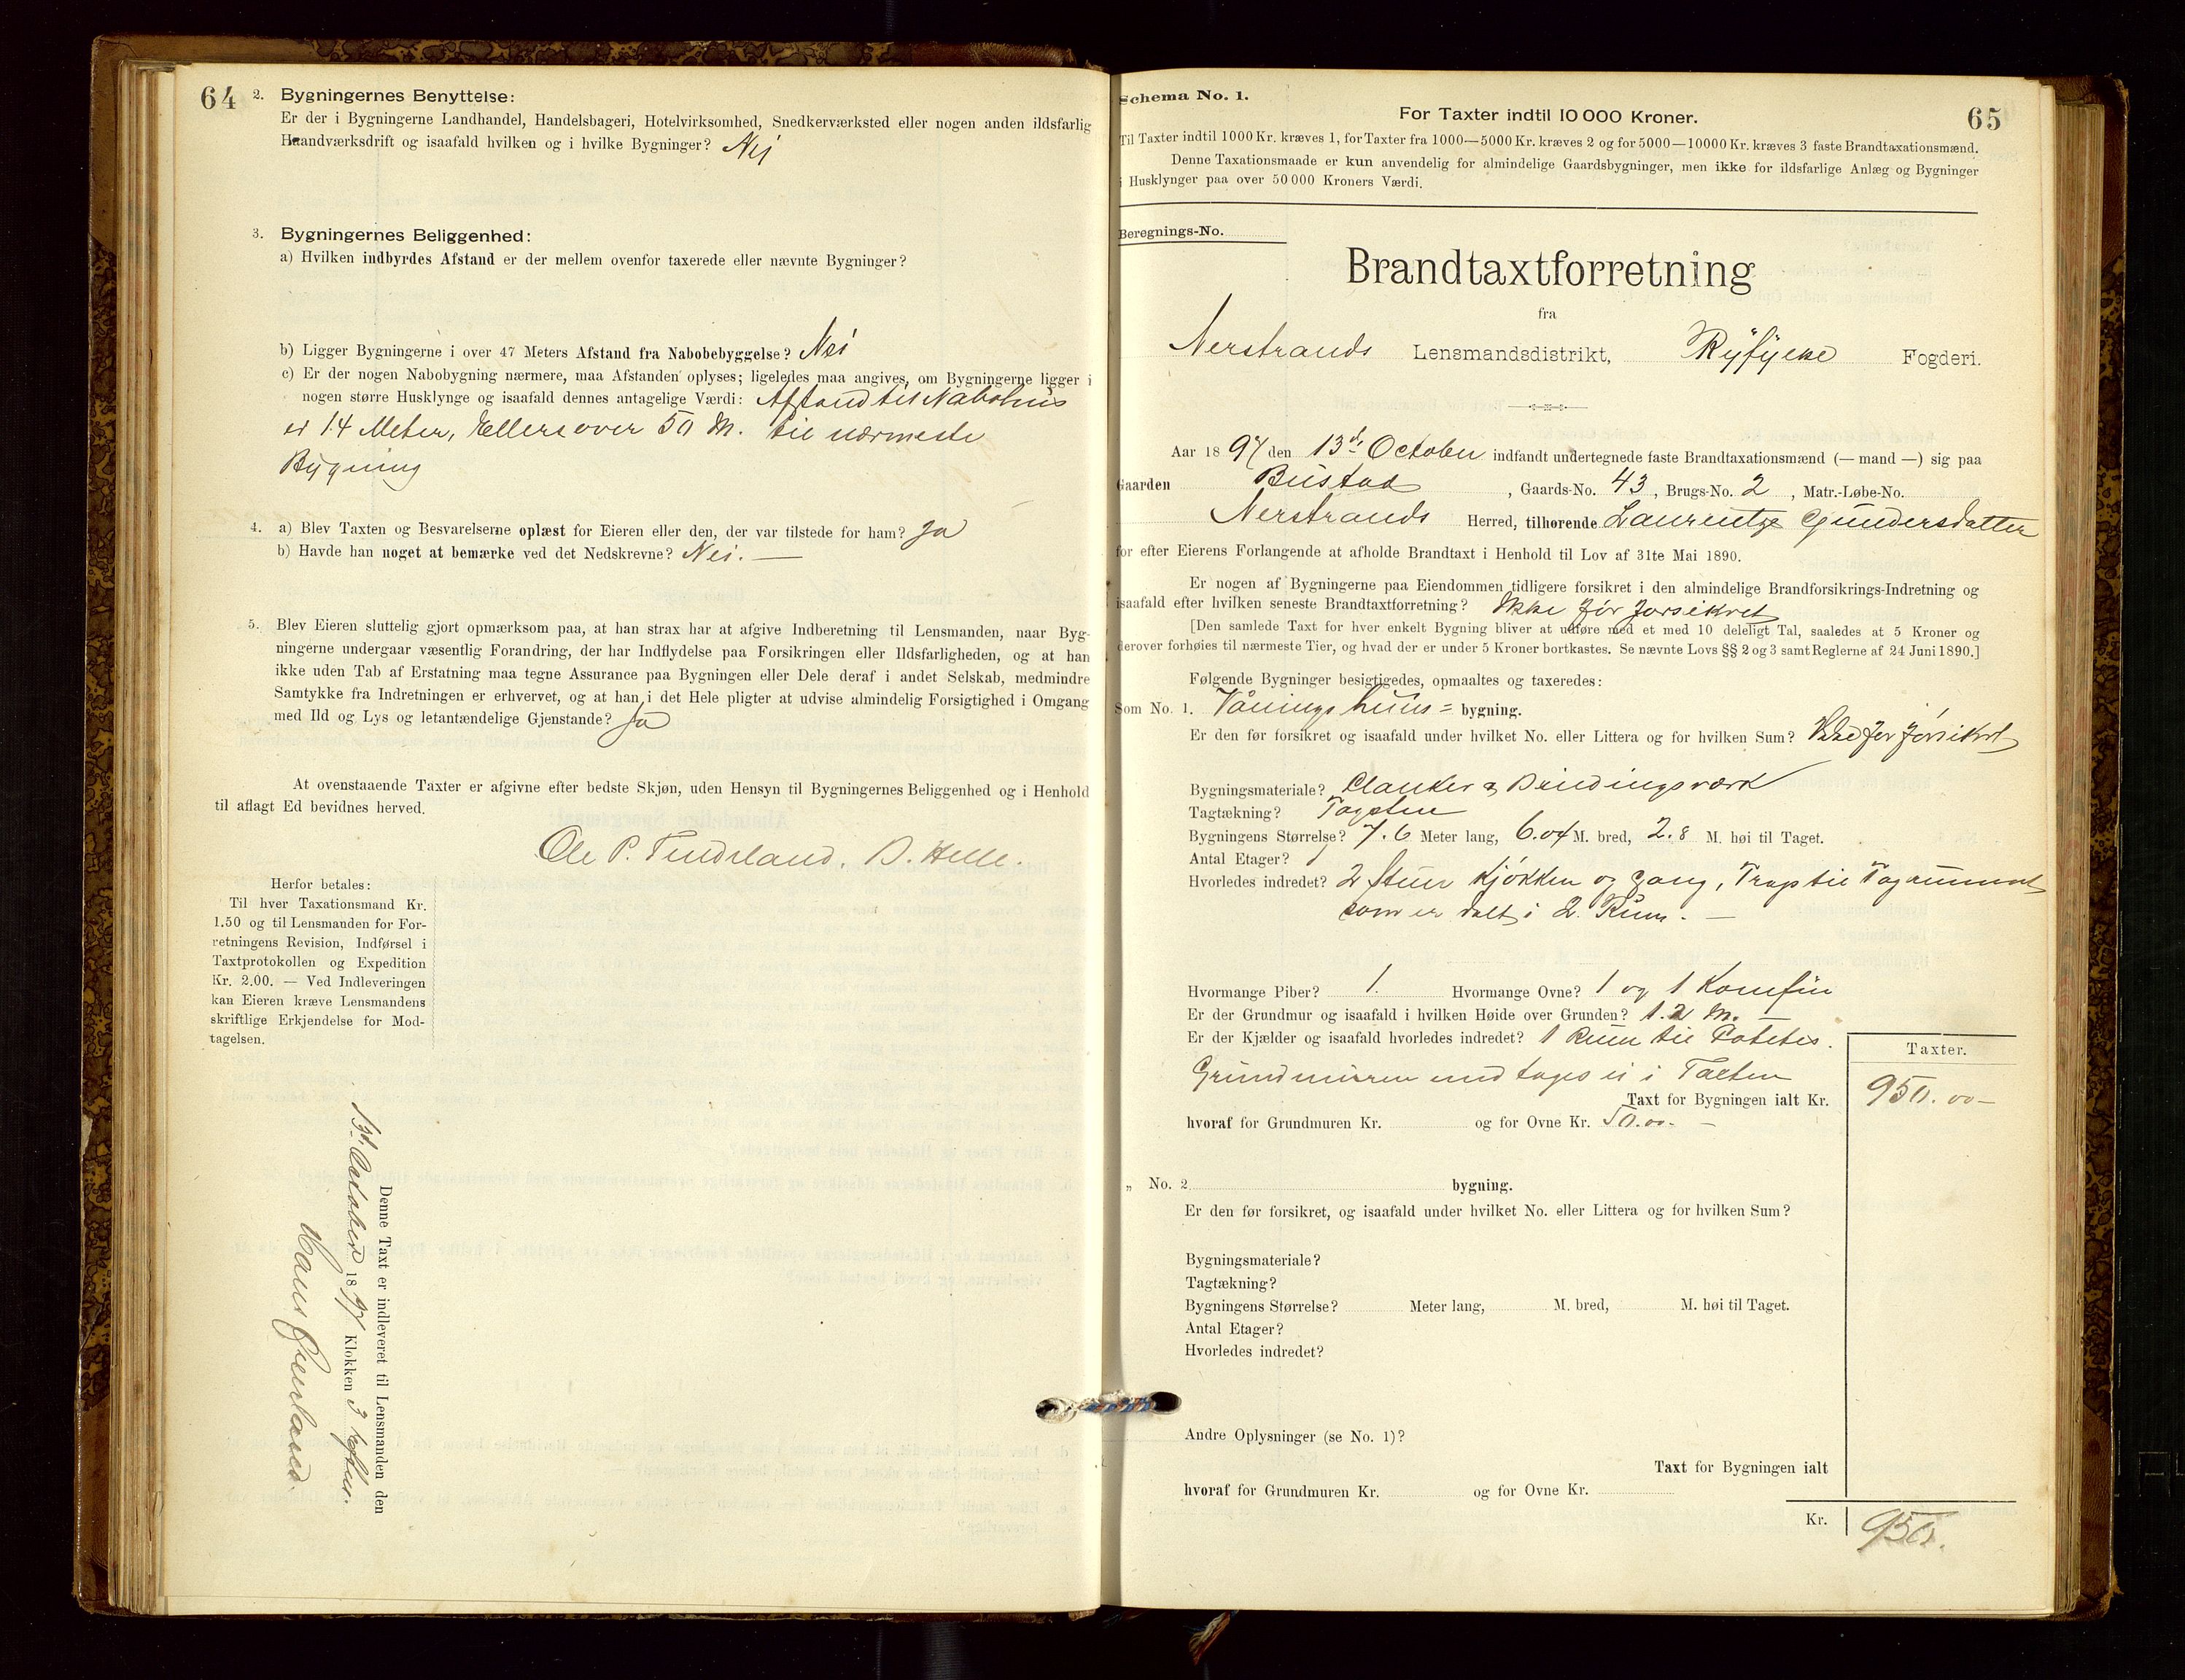 64
2. Bygningernes Benyttelse:
Er der i Bygningerne Landhandel, Handelsbageri, Hotelvirksomhed, Snedkerværksted eller nogen anden ildsfarlig
Haandværksdrift og isaafald hvilken og i hvilke Bygninger? Nei
3. Bygningernes Beliggenhed:
a) Hvilken indbyrdes Afstand er der mellem ovenfor taxerede eller nævnte Bygninger?
b) Ligger Bygningerne i over 47 Meters Afstand fra Nabobebyggelse? Nei
c) Er der nogen Nabobygning nærmere, maa Afstanden oplyses; ligeledes maa angives, om Bygningerne ligger i
nogen større Husklynge og isaafald dennes antagelige Værdi: Afstand til Nabohus
er 14 Meter, Ellers over 50 M. til nærmeste
Bygning
4. a) Blev Taxten og Besvarelserne oplæst for Eieren eller den, der var tilstede for ham? Ja
b) Havde han noget at bemærke ved det Nedskrevne? Nei. —
5. Blev Eieren sluttelig gjort opmærksom paa, at han strax har at afgive Indberetning til Lensmanden, naar Byg-
ningerne undergaar væsentlig Forandring, der har Indflydelse paa Forsikringen eller Ildsfarligheden, og at han
ikke uden Tab af Erstatning maa tegne Assurance paa Bygningen eller Dele deraf i andet Selskab, medmindre
Samtykke fra Indretningen er erhvervet, og at han i det Hele pligter at udvise almindelig Forsigtighed i Omgang
med Ild og Lys og letantændelige Gjenstande? Ja
At ovenstaaende Taxter er afgivne efter bedste Skjøn, uden Hensyn til Bygningernes Beliggenhed og i Henhold
til aflagt Ed bevidnes herved.
Ole P. Tindeland. D. Helle.
Herfor betales:
Til hver Taxationsmand Kr.
1.50 og til Lensmanden for For-
retningens Revision, Indførsel i
Taxtprotokollen og Expedition
Kr. 2.00. — Ved Indleveringen
kan Eieren kræve Lensmandens
skriftlige Erkjendelse for Mod-
tagelsen.
Denne Taxt er indleveret til Lensmanden den
October 1897 Klokken 3 Efter.
Schema No. 1.
For Taxter indtil 10 000 Kroner.
65
Til Taxter indtil 1000 Kr. kræves 1, for Taxter fra 1000—5000 Kr. kræves 2 og for 5000—10000 Kr. kræves 3 faste Brandtaxationsmænd.
Denne Taxationsmaade er kun anvendelig for almindelige Gaardsbygninger, men ikke for ildsfarlige Anlæg og Bygninger
i Husklynger paa over 50 000 Kroners Værdi.
Beregnings-No.
Brandtaxtforretning
fra
Nerstrands Lensmandsdistrikt, Ryfylke Fogderi.
Aar 1897 den 13de October indfandt undertegnede faste Brandtaxationsmænd (— mand —) sig paa
Gaarden Bustad , Gaards-No. 43, Brugs-No. 2 , Matr.-Løbe-No.
Nerstrands Herred, tilhørende Laurentze Gundersdatter
for efter Eierens Forlangende at afholde Brandtaxt i Henhold til Lov af 31te Mai 1890.
Er nogen af Bygningerne paa Eiendommen tidligere forsikret i den almindelige Brandforsikrings-Indretning og
isaafald efter hvilken seneste Brandtaxtforretning? Ikke før forsikret
[Den samlede Taxt for hver enkelt Bygning bliver at udføre med et med 10 deleligt Tal, saaledes at 5 Kroner og
derover forhøies til nærmeste Tier, og hvad der er under 5 Kroner bortkastes. Se nævnte Lovs §§ 2 og 3 samt Reglerne af 24 Juni 1890.]
Følgende Bygninger besigtigedes, opmaaltes og taxeredes:
Som No. 1. Vaaningshuus= bygning.
Er den før forsikret og isaafald under hvilket No. eller Littera og for hvilken Sum? Ikke før forsikret
Bygningsmateriale? Planker & Bindingsværk
Tagtækning? Tagsten
Bygningens Størrelse? 7.6 Meter lang, 6.04 M. bred, 2.8 M. høi til Taget.
Antal Etager? 1
Hvorledes indredet? 2 Stuer Kjøkken og gang, Trap til Tagrummet
som er delt i 2 Rum. —
Hvormange Piber? 1. Hvormange Ovne? 1 og 1 Komfur
Er der Grundmur og isaafald i hvilken Høide over Grunden? 1.2 M. —
Er der Kjælder og isaafald hvorledes indredet? 1 Rum til Potetes.
Grundmuren undtages ei i Taxten
Taxter.
Taxt for Bygningen ialt Kr. 950.00 —
hvoraf for Grundmuren Kr. og for Ovne Kr. 50.00. —
„ No. 2 bygning.
Er den før forsikret, og isaafald under hvilket No. eller Littera og for hvilken Sum?
Bygningsmateriale?
Tagtækning?
Bygningens Størrelse? Meter lang, M. bred, M. høi til Taget.
Antal Etager?
Hvorledes indredet?
Andre Oplysninger (se No. 1)?
Taxt for Bygningen ialt
hvoraf for Grundmuren Kr. og for Ovne Kr.
Kr. 950.